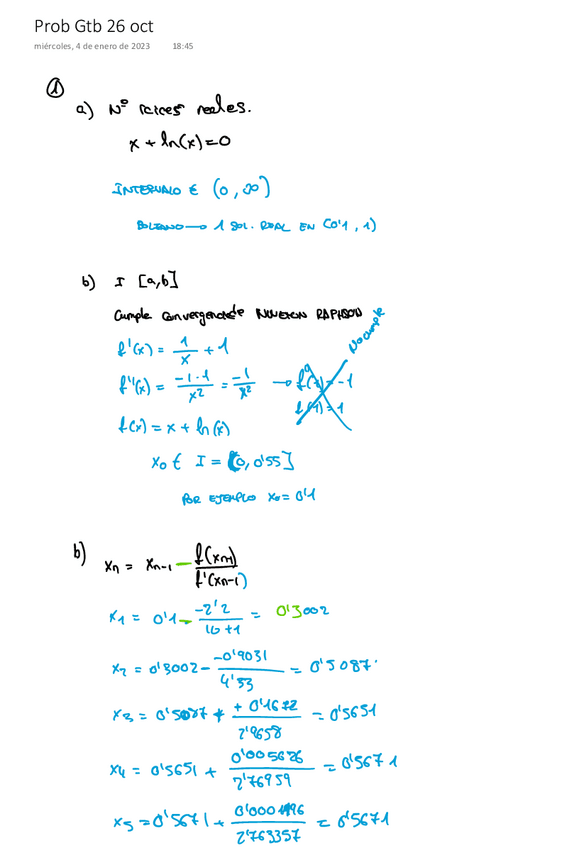 Prob Gtb 26 oct
miércoles, 4 de enero de 2023 18:45
①
a) Nº raices reales.
x + ln(x)=0
INTERVALO ∈ (0, ∞)
BOLZANO → 1 SOL. REAL EN (0'1, 1)
b) I [a,b]
Cumple convergencia de NEWTON RAPHSON
No cumple
f'(x) = 1/x + 1
f''(x) = -1·1/x² = -1/x² → f''(x) = -1
f(1) = 1
f(x) = x + ln(x)
x₀ ∈ I = [0, 0'55]
POR EJEMPLO x₀ = 0'1
b) xn = xn-1 - f(xn-1)/f'(xn-1)
x1 = 0'1 - -2'2/10+1 = 0'3002
x2 = 0'3002 - -0'9031/4'33 = 0'5087
x3 = 0'5087 + + 0'1672/2'9658 = 0'5651
x4 = 0'5651 + 0'005626/2'76959 = 0'5671
x5 = 0'5671 + 0'0001196/2'763357 = 0'5671